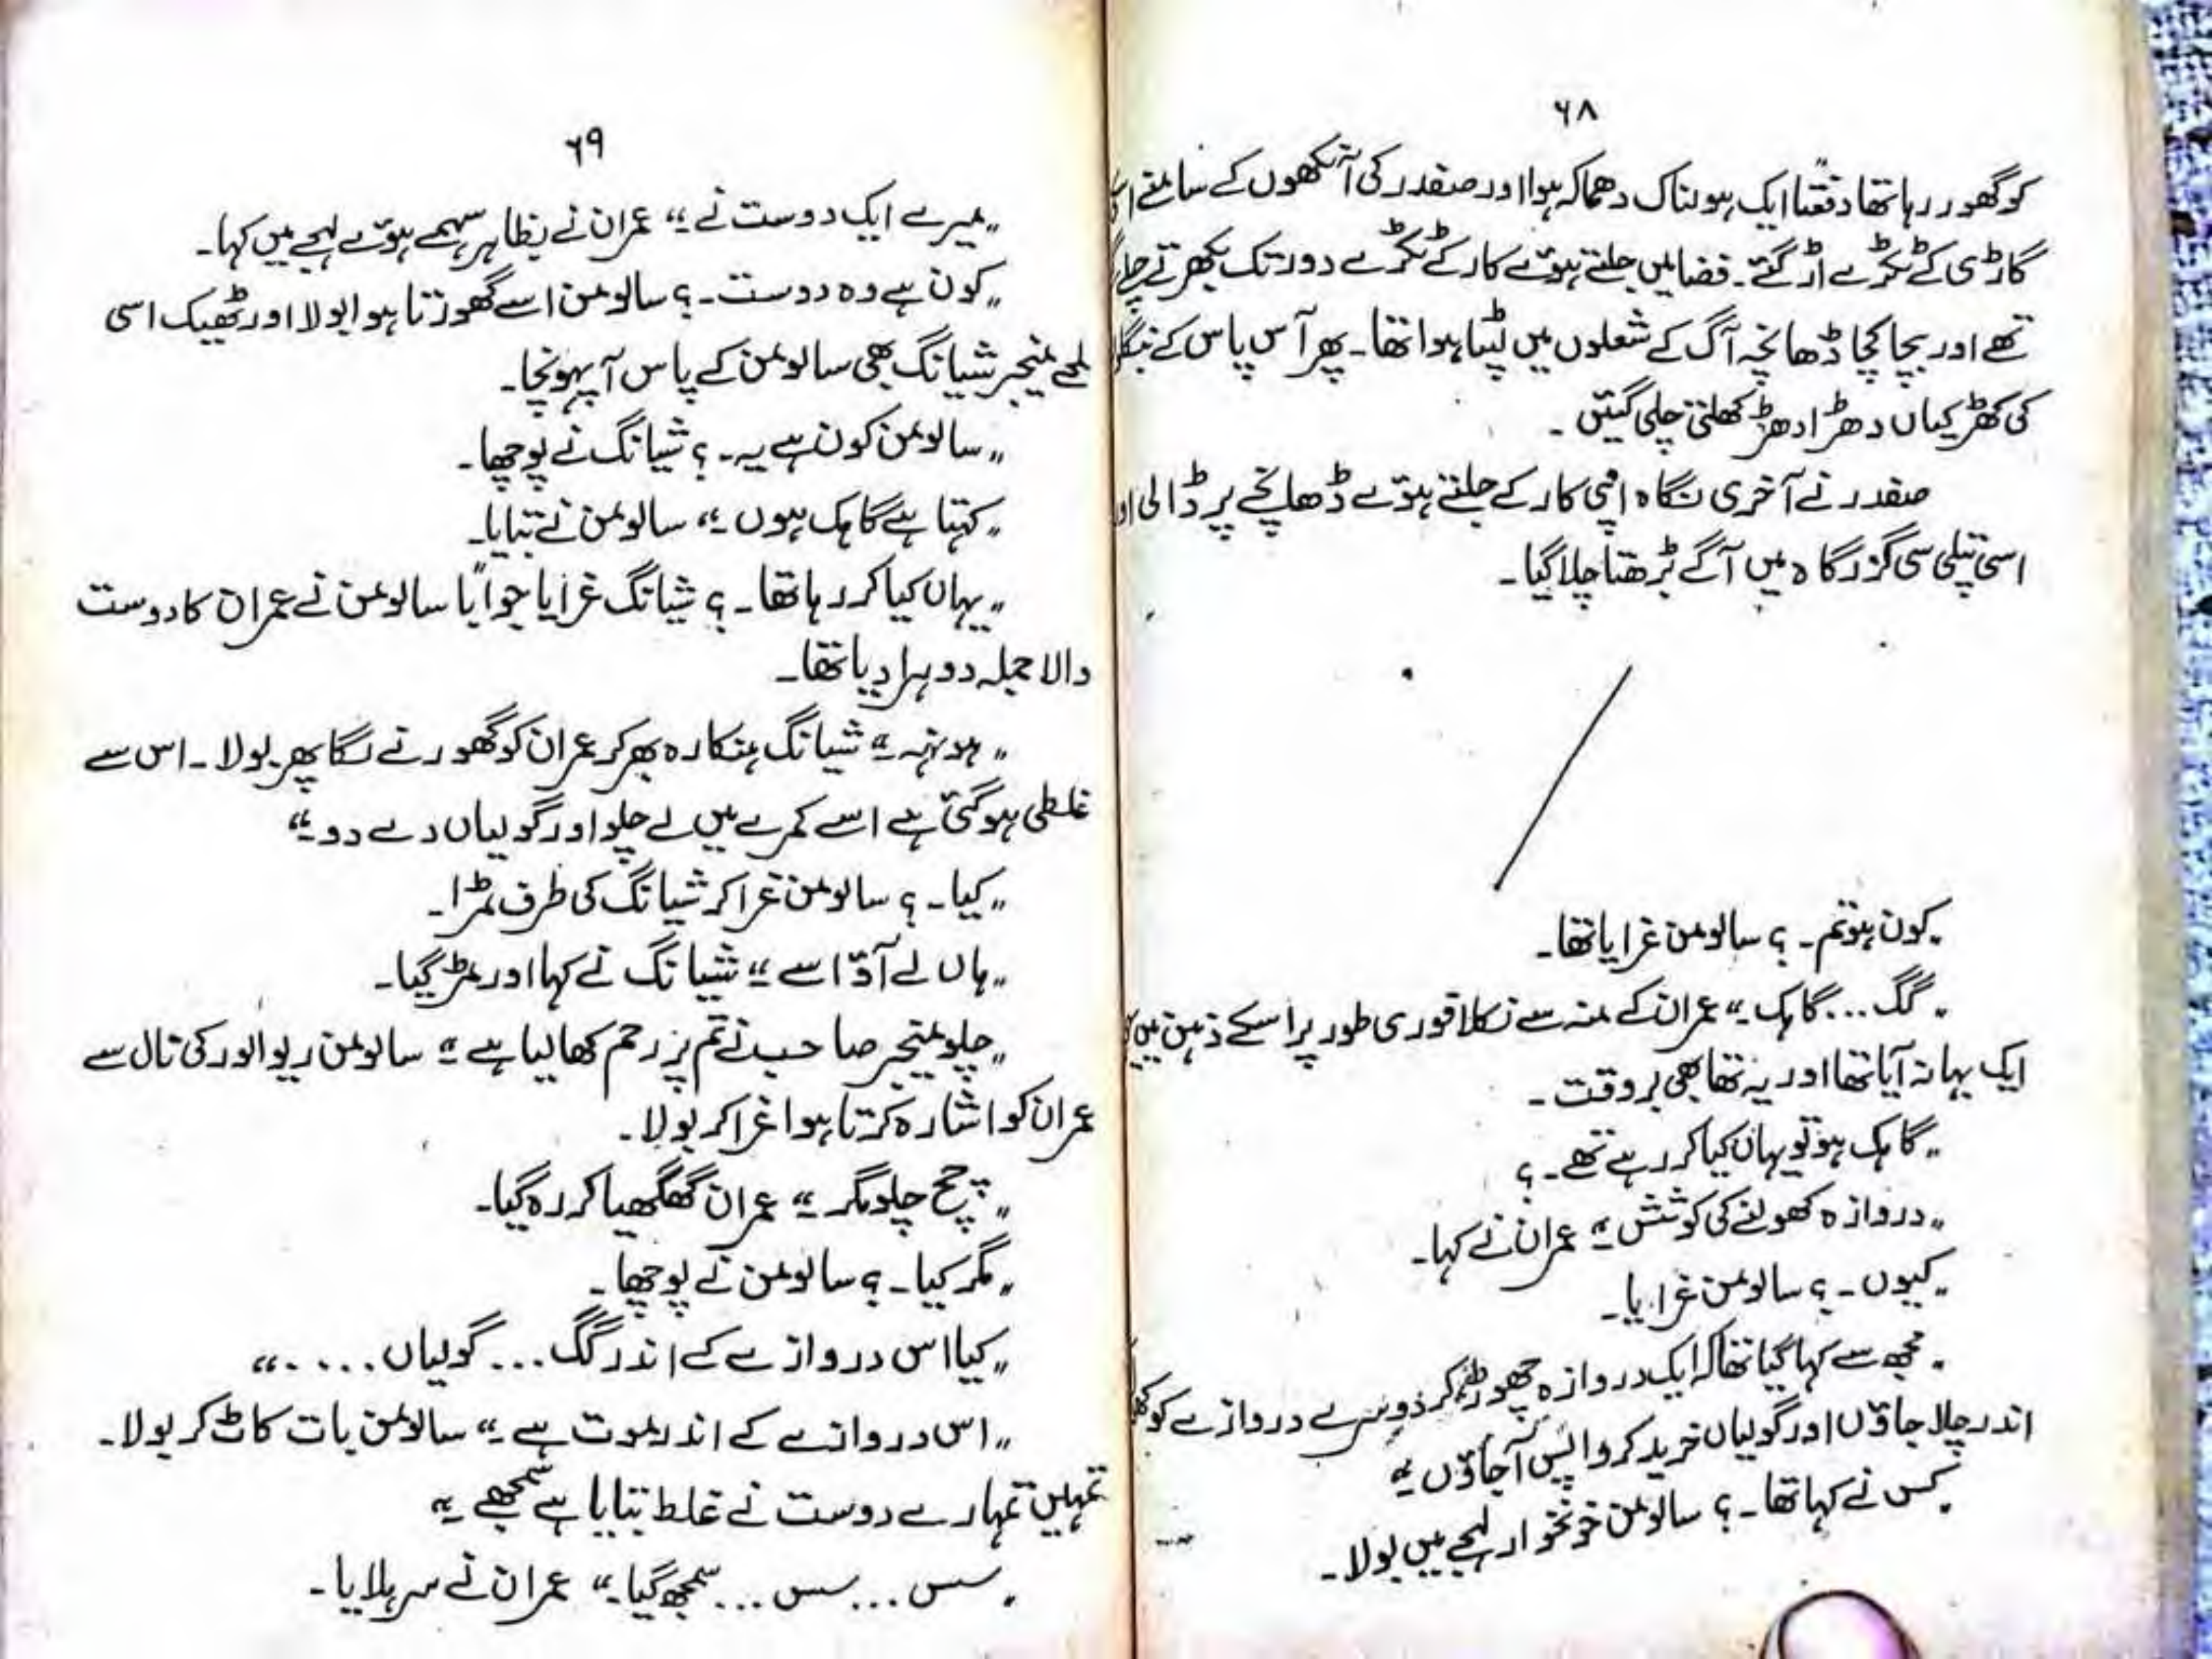 ۶۸
کو گھور رہا تھا دفعتاً ایک ہولناک دھماکہ ہوا اور صفدر کی آنکھوں کے سامنے
گاڑی کے ٹکڑے اڑ گئے۔ فضا میں جلتے ہوئے کار کے ٹکڑے دور تک بکھرتے
تھے اور بچا کچا ڈھانچہ آگ کے شعلوں میں لپٹا ہوا تھا۔ پھر آس پاس کے
کی کھڑکیاں دھڑا دھڑ کھلتی چلی گئیں ۔
صفدر نے آخری نگاہ اپنی کار کے جلتے ہوئے ڈھانچے پر ڈالی
اسی پتلی سی گزرگاہ میں آگے بڑھتا چلا گیا ۔
”کون ہو تم ۔ ؟ سالومن غرایا تھا۔
”گگ ... گاہک ۔“ عمران کے منہ سے نکلا فوری طور پر اسکے ذہن میں
ایک بہانہ آیا تھا اور یہ تھا بھی بر وقت ۔
”گاہک ہو تو یہاں کیا کر رہے تھے ۔ ؟
”دروازہ کھولنے کی کوشش ۔“ عمران نے کہا ۔
”کیوں ۔ ؟ سالومن غرایا ۔
”مجھ سے کہا گیا تھا کہ ایک دروازہ چھوڑ کر دوسرے دروازے کو
اندر چلا جاؤں اور گولیاں خرید کر واپس آجاؤں ۔“
”کس نے کہا تھا ۔ ؟ سالومن خونخوار لہجے میں بولا ۔
۶۹
”میرے ایک دوست نے ۔“ عمران نے بظاہر سہمے ہوئے لہجے میں کہا ۔
”کون ہے وہ دوست ۔ ؟ سالومن اسے گھورتا ہوا بولا اور ٹھیک اسی
لمحے منیجر شیانگ بھی سالومن کے پاس آ پہونچا ۔
”سالومن کون ہے یہ ۔ ؟ شیانگ نے پوچھا ۔
”کہتا ہے گاہک ہوں ۔“ سالومن نے بتایا ۔
”یہاں کیا کر رہا تھا ۔ ؟ شیانگ غرایا جواباً سالومن نے عمران کا دوست
والا جملہ دوہرا دیا تھا ۔
”ہونہہ ۔“ شیانگ ہنکارہ بھر کر عمران کو گھورنے لگا پھر بولا ۔ اس سے
غلطی ہو گئی ہے اسے کمرے میں لے چلو اور گولیاں دے دو ۔“
”کیا ۔ ؟ سالومن غرا کر شیانگ کی طرف مڑا ۔
”ہاں لے آؤ اسے ۔“ شیانگ نے کہا اور مڑ گیا ۔
”چلو منیجر صاحب نے تم پر رحم کھا لیا ہے ۔“ سالومن ریوالور کی نال سے
عمران کو اشارہ کرتا ہوا غرا کر بولا ۔
”چچ چلو مگر ۔“ عمران گھگھیا کر رہ گیا ۔
”مگر کیا ۔ ؟ سالومن نے پوچھا ۔
”کیا اس دروازے کے اندر گگ ... گولیاں ....“
”اس دروازے کے اندر موت ہے ۔“ سالومن بات کاٹ کر بولا ۔
تمہیں تمہارے دوست نے غلط بتایا ہے سمجھے ۔“
”سس ... سس ... سمجھ گیا ۔“ عمران نے سر ہلایا ۔